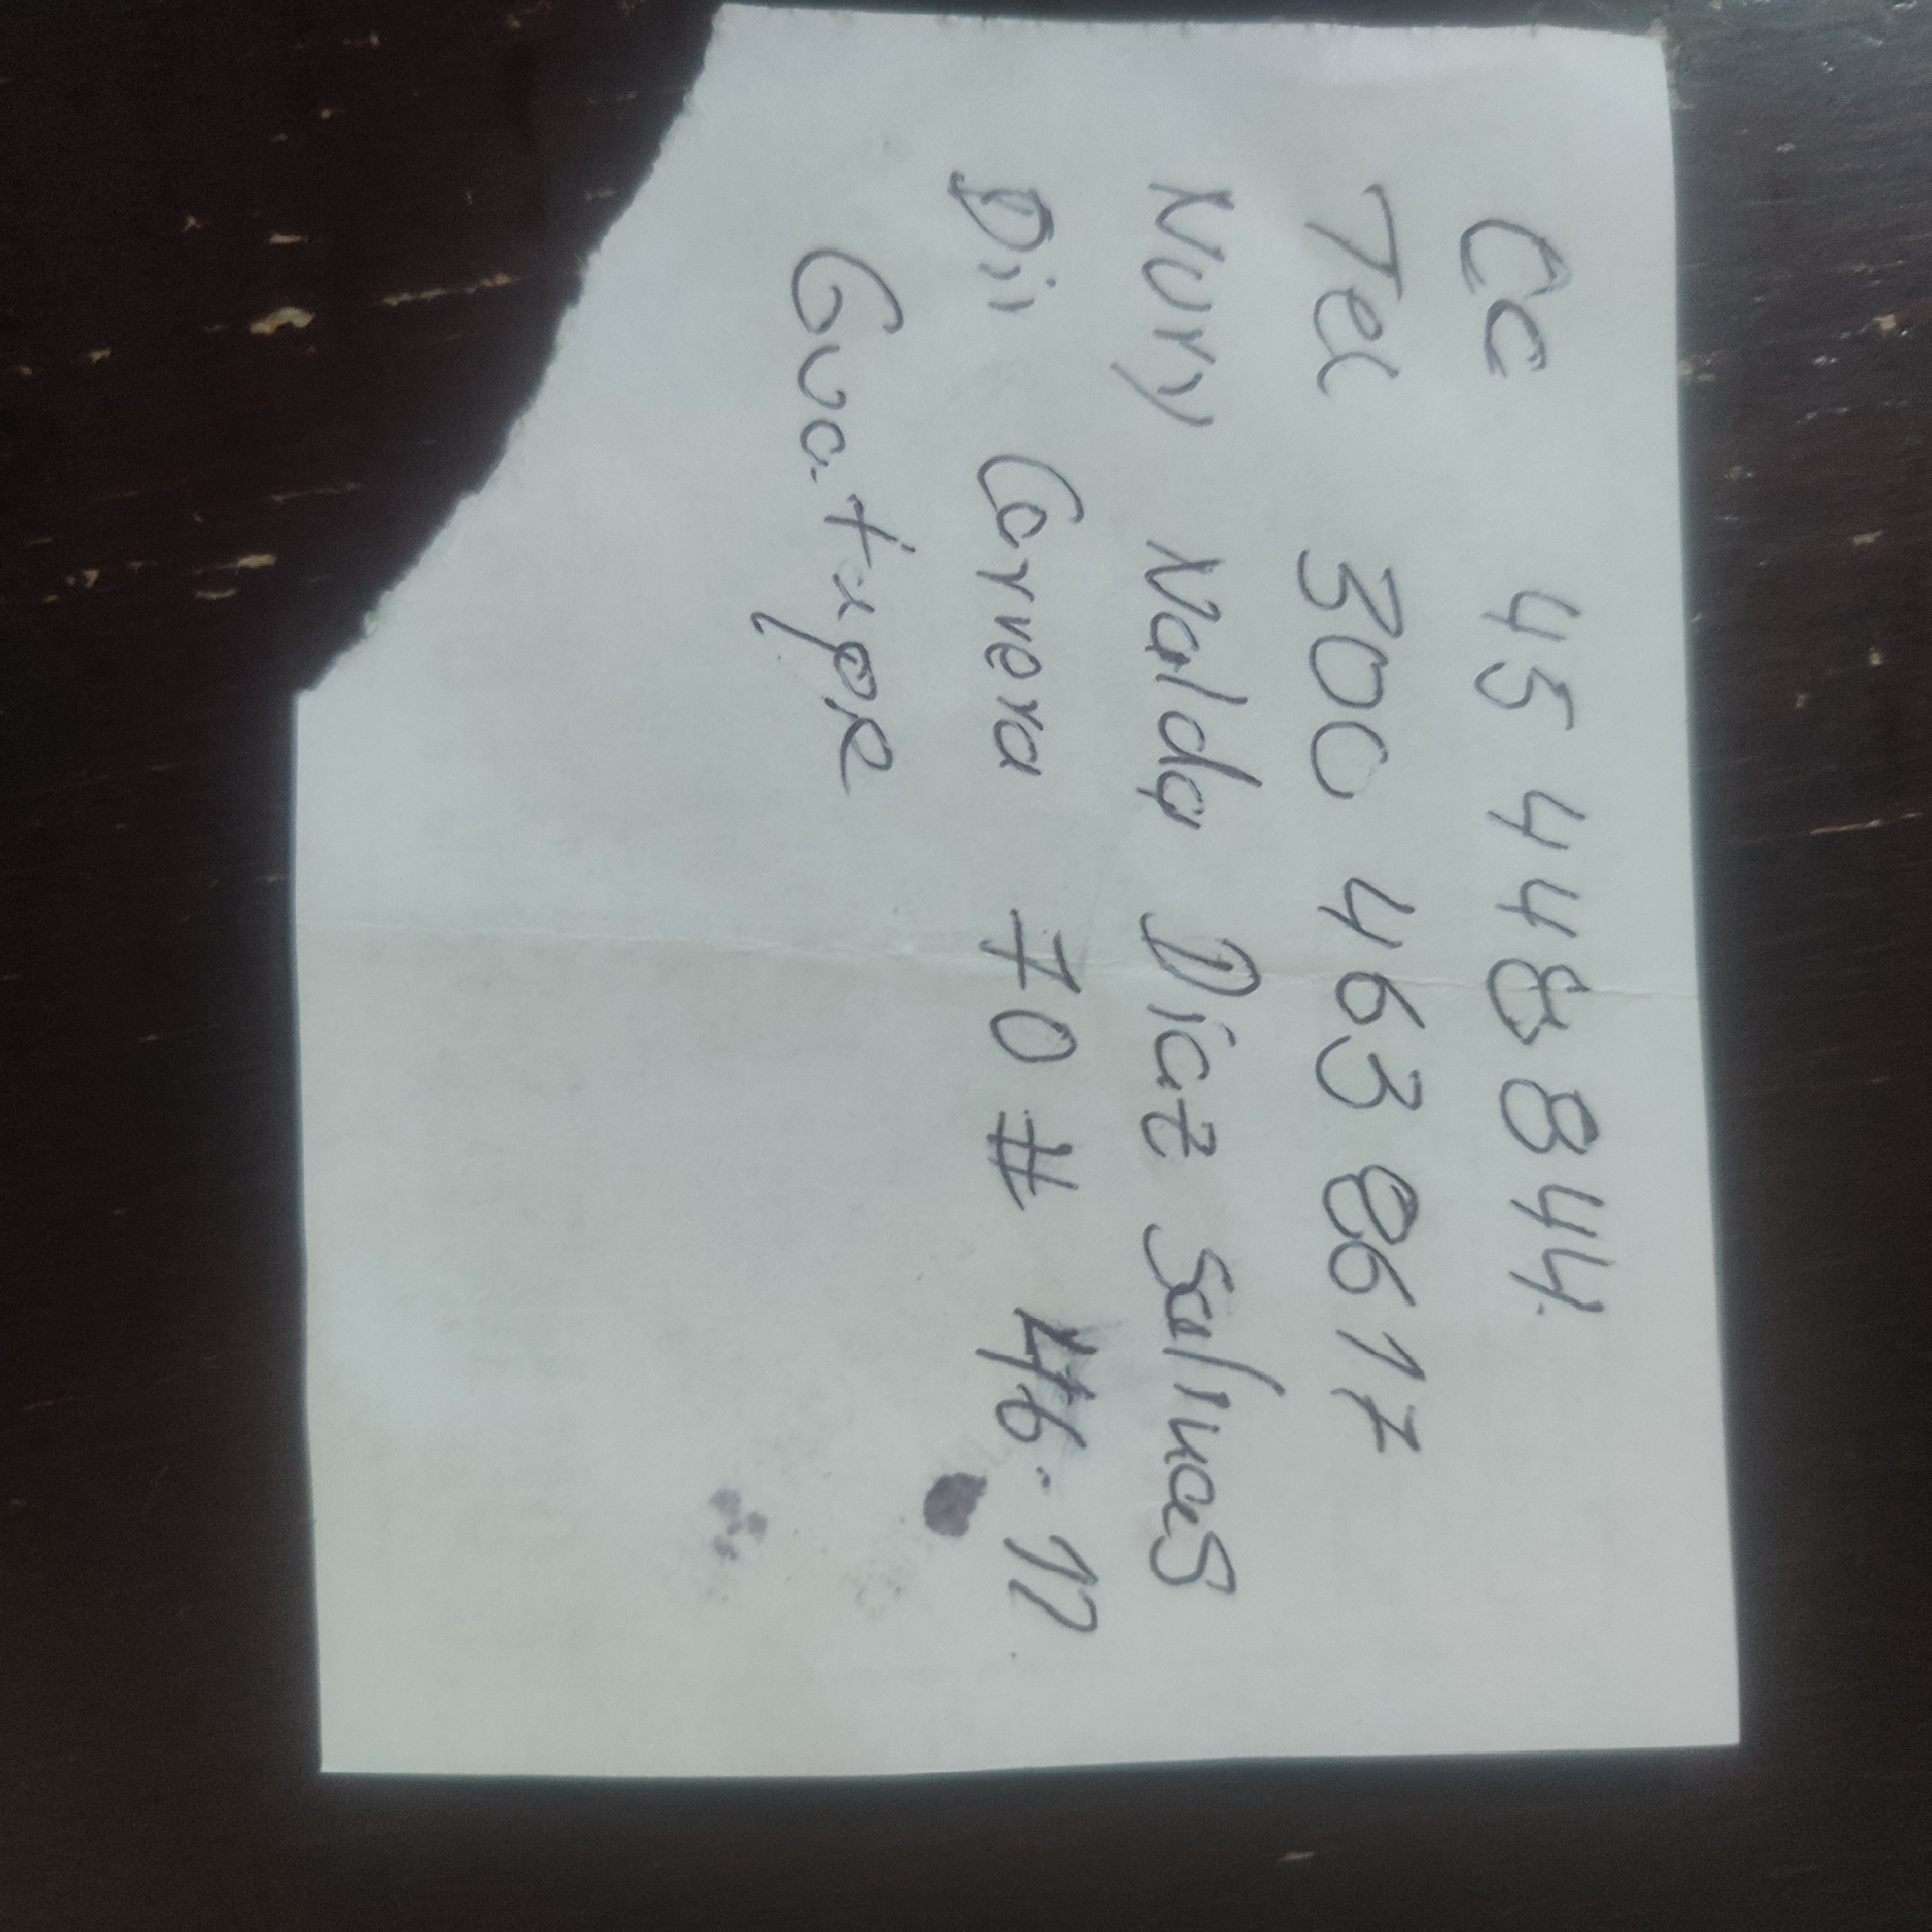 CC 45 448 844
Tel 300 463 8617
Nury Nalda Diaz Salinas
Dir Carrera 70 # 46.12
Guatupe